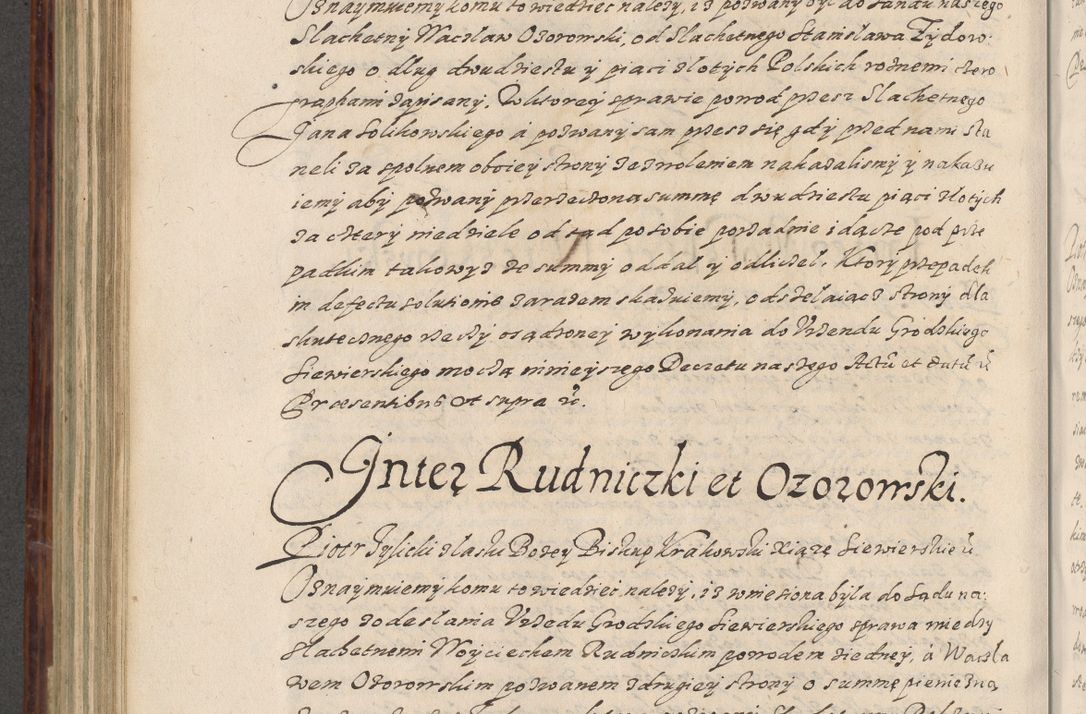 Oznaymuiemy komu to wiedziec nalezy, iz pozwany był do sandu naszego
Slachetny Waczlaw Ozorowski, od Slachetnego Stanisława Zydow:
skiego o dlug dwudziestu y piąci zlotych Polskich roznemi cziro
graphami zapisany. W ktorey sprawie powod przesz Slachetnego
Jana Solikowskiego á pozwany sam przesz się, gdy przed nami sta
neli za spolnem oboiey strony zezwoleniem nakazalismy y nakazu
iemy aby pozwany przerzeczoną summę dwudziestu piąci zlotych
za cztery niedziele od tąd po sobie porządnie idącze pod prze
padkim takowyz te summy oddal y odliczel. Ktory przepadek
in defectu solutionis zarazem skazuiemy, odszelaiącz strony dla
skutecznego rzeczy osądzoney wykonania do Vrzendu Grodzkiego
Siewierskiego moczą ninieyszego Decretu naszego Actū et datū ū
Præsentibus ut supra ū.
Inter Rudniczki et Ozorowski.
Piotr Tylicki z laski Bozey Biskup Krakowski Xiązę Siewierskie ū
Oznaymuiemy komu to wiedziec nalezy, iz wniesiona byla do Sądu na:
szego z odeslania Vrzedu Grodzkiego Siewierskiego sprawa miedzy
slabetnemi Woyciechem Rudniczkim powodem ziedney, á Waczla
wem Ozorowskim pozwanem z drugiey strony o summę pieniezną